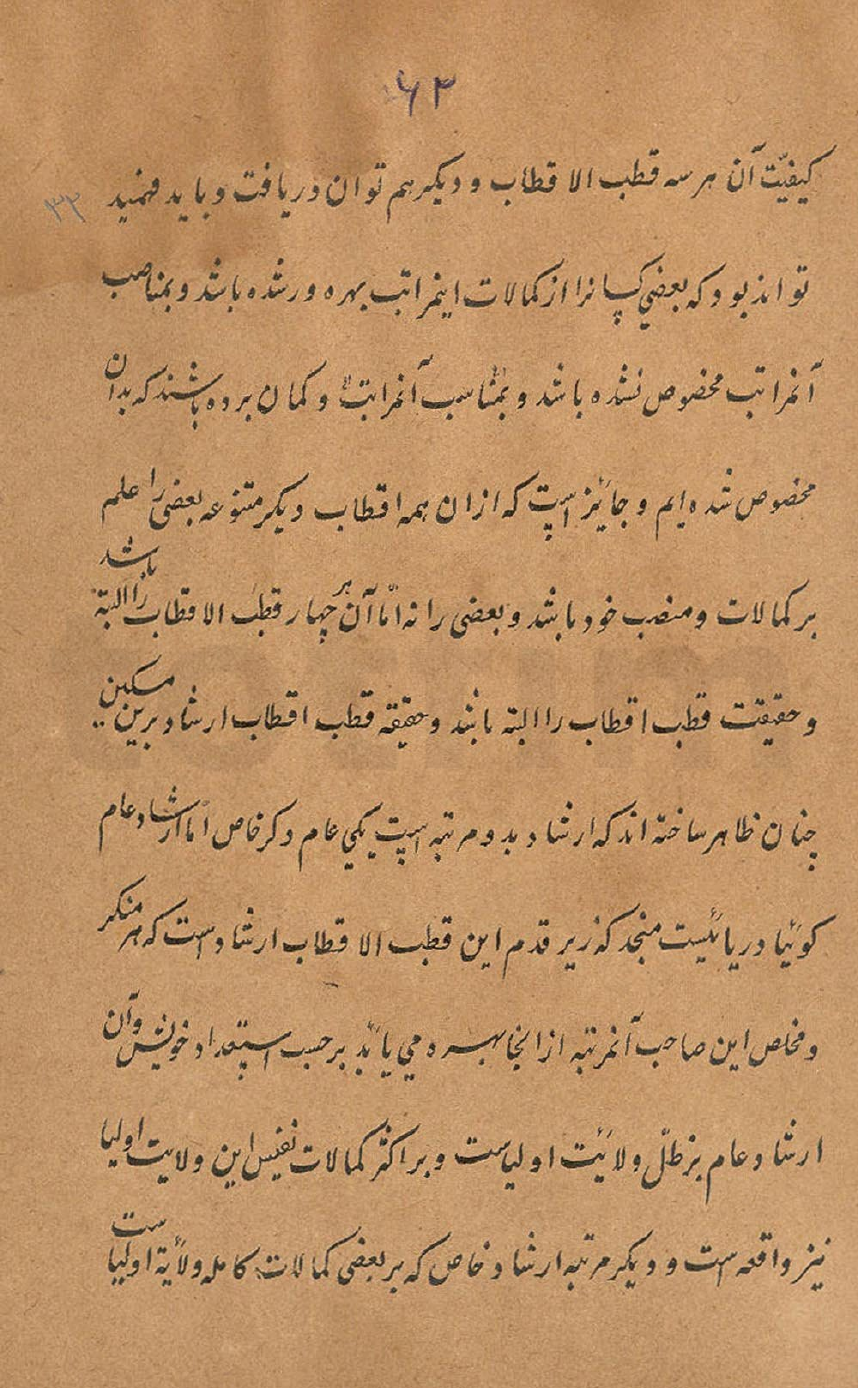 ۶۲
۳۲
کیفیّت آن هر سه قطب الاقطاب و دیکر هم توان دریافت و باید فهمید
تواند بود که بعضی کسانرا از کمالات اینمراتب بهره ور شده باشد و بمناصب
آنمراتب مخصوص نشده باشد و بمناسب آنمراتب و کمان برده باشند که بدان
مخصوص شده ایم و جائیز است که ازان همه اقطاب دیکر متنوعه بعضی را علم
بر کمالات و منصب خود باشد و بعضی را نه امّا آن هر چهار قطب الاقطاب را البتة باشد
و حقیقت قطب اقطاب را البته باشد و حقیقه قطب اقطاب ارشاد برین مسکین
چنان ظاهر ساخته اند که ارشاد بدو مرتبه است یکی عام دکر خاص امّا ارشاد عام
کوئیا دریائیست منجمد که زیر قدم این قطب الاقطاب ارشاد است که هر منکر
و مخلص این صاحب آنمرتبه از انجا بهره می یابد بر حسب استعداد خویش و آن
ارشاد عام بر ظلّ ولائیت اولیاست و بر اکثر کمالات نفیس این ولایت اولیا
نیز واقعه است و دیکر مرتبه ارشاد خاص که بر بعضی کمالات کامله ولایة اولیا است